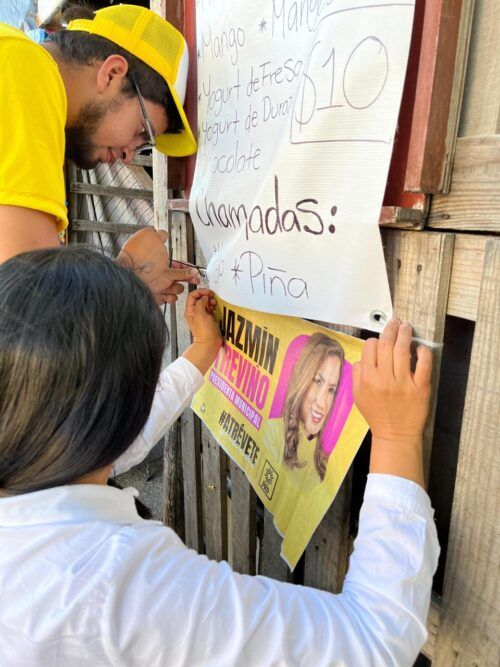 * Mango * Mango
* Yogurt de Fresa
* Yogurt de Dura
$10
hocolate
hamadas:
* Piña
JAZMÍN
TREVIÑO
PRESIDENTA MUNICIPAL
#ATRÉVETE